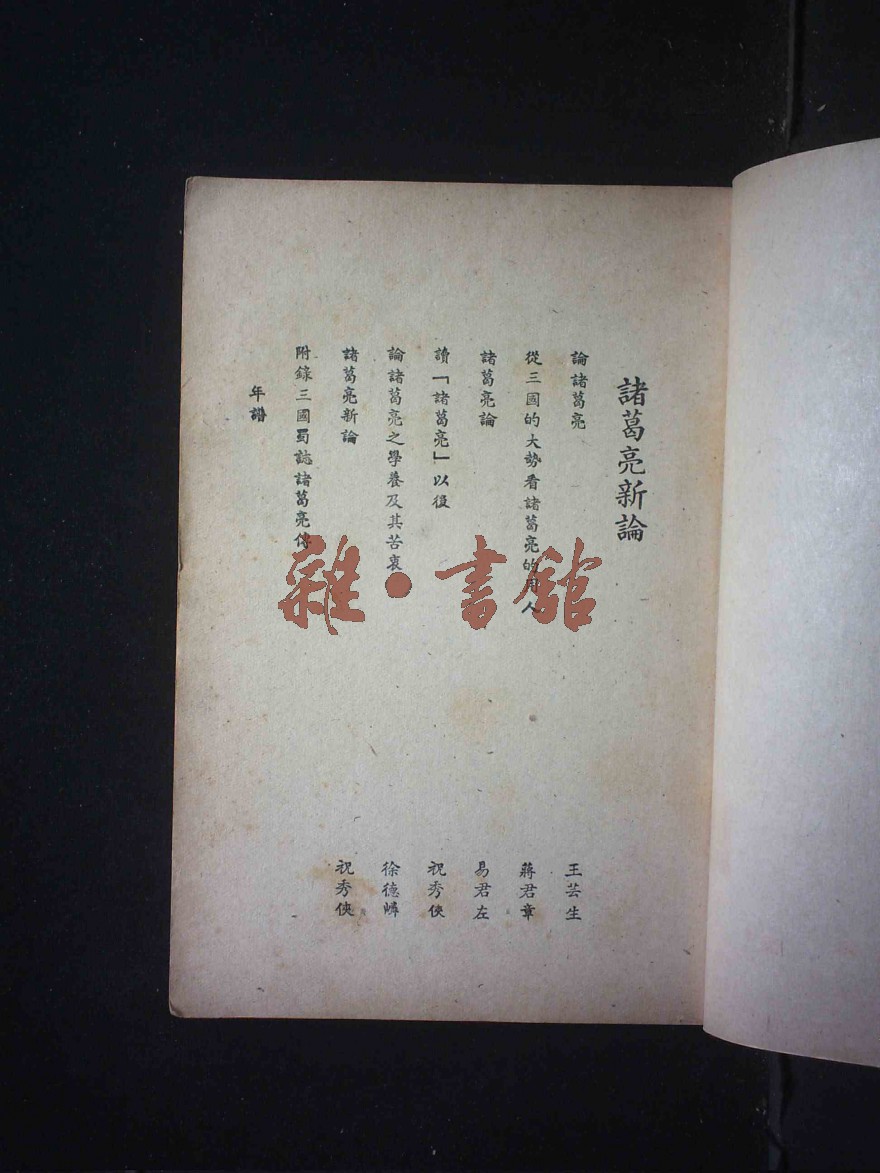 諸葛亮新論
論諸葛亮 王芸生
從三國的大勢看諸葛亮的用人 蔣君章
諸葛亮論 易君左
讀「諸葛亮」以後 祝秀俠
論諸葛亮之學養及其苦衷 徐德嶙
諸葛亮新論 祝秀俠
附錄三國蜀誌諸葛亮傳
年譜
雜·書館